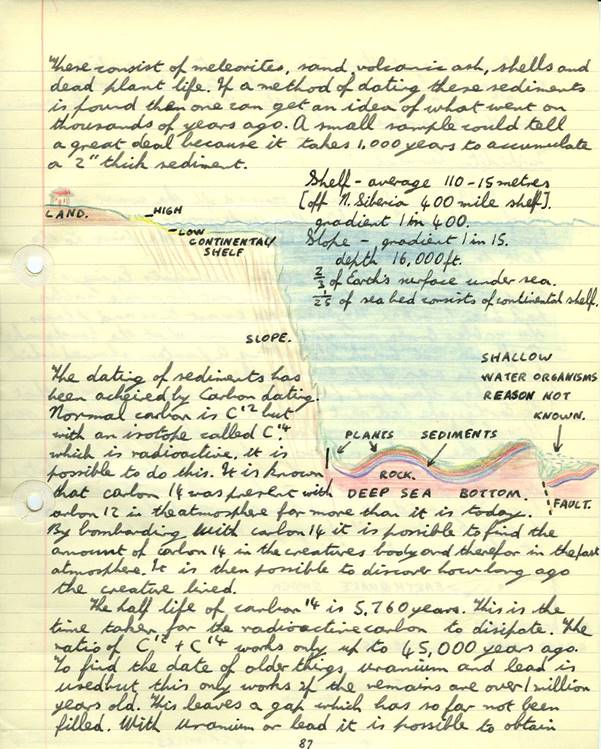 These consist of meteorites, sand, volcanic ash, shells and
dead plant life. If a method of dating these sediments
is found then one can get an idea of what went on
thousands of years ago. A small sample could tell
a great deal because it takes 1,000 years to accumulate
a 2" thick sediment.
Shelf - average 110-15 metres
[off N. Siberia 400 mile shelf].
gradient 1 in 400.
Slope - gradient 1 in 15.
depth 16,000 ft.
2/3 of Earth's surface under sea.
1/25 of sea bed consists of continental shelf.
LAND.
HIGH
LOW
CONTINENTAL
SHELF
SLOPE.
SHALLOW
WATER ORGANISMS
REASON NOT
KNOWN.
PLANTS SEDIMENTS
ROCK.
DEEP SEA BOTTOM.
FAULT.
The dating of sediments has
been acheived by Carbon dating.
Normal carbon is C¹² but
with an isotope called C¹⁴
which is radioactive, it is
possible to do this. It is known
that carbon 14 was present with
arbon 12 in the atmosphere for more than it is today.
By bombarding With carbon 14 it is possible to find the
amount of carbon 14 in the creatures body and therefor in the past
atmosphere. It is then possible to discover how long ago
the creature lived.
The half life of carbon ¹⁴ is 5,760 years. This is the
time taken for the radioactive carbon to disipate. The
ratio of C¹² + C¹⁴ works only up to 45,000 years ago.
To find the date of older things, uranium and lead is
used but this only works if the remains are over 1 million
years old. This leaves a gap which has so far not been
filled. With Uranium or lead it is possible to obtain
87